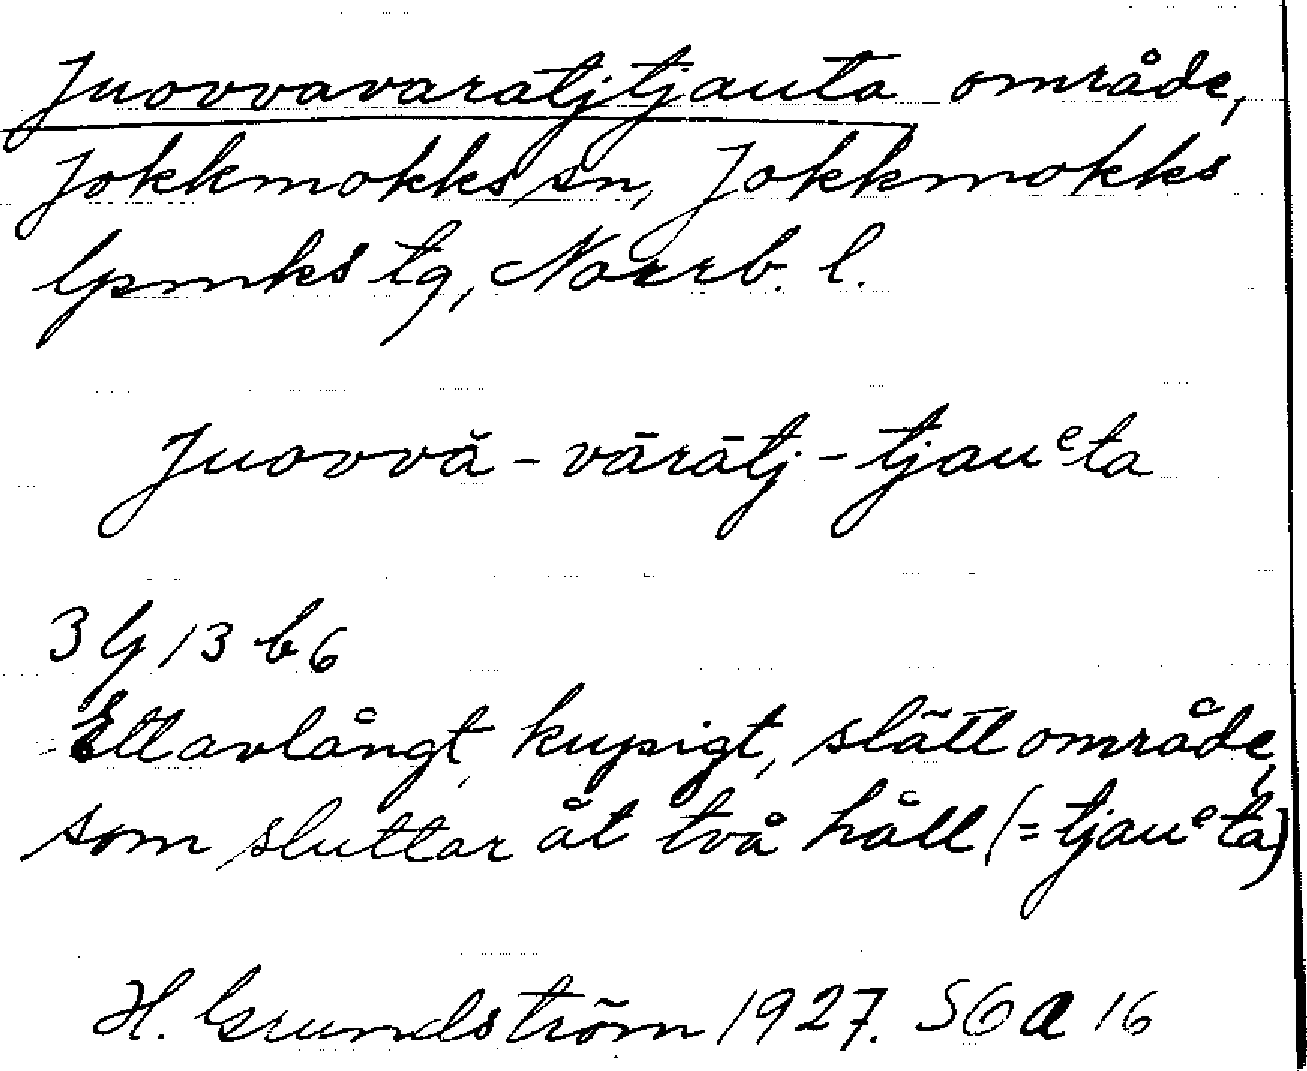 Juovvavaratjtjauta område,
Jokkmokks sn, Jokkmokks
lpmks tg, Norrb. l.
Juovvă - vārātj - tjauᵉta
3 G 13 b 6
Ett avlångt, kupigt, slätt område,
som sluttar åt två håll (= tjauᵉta)
H. Grundström 1927. SGa 16